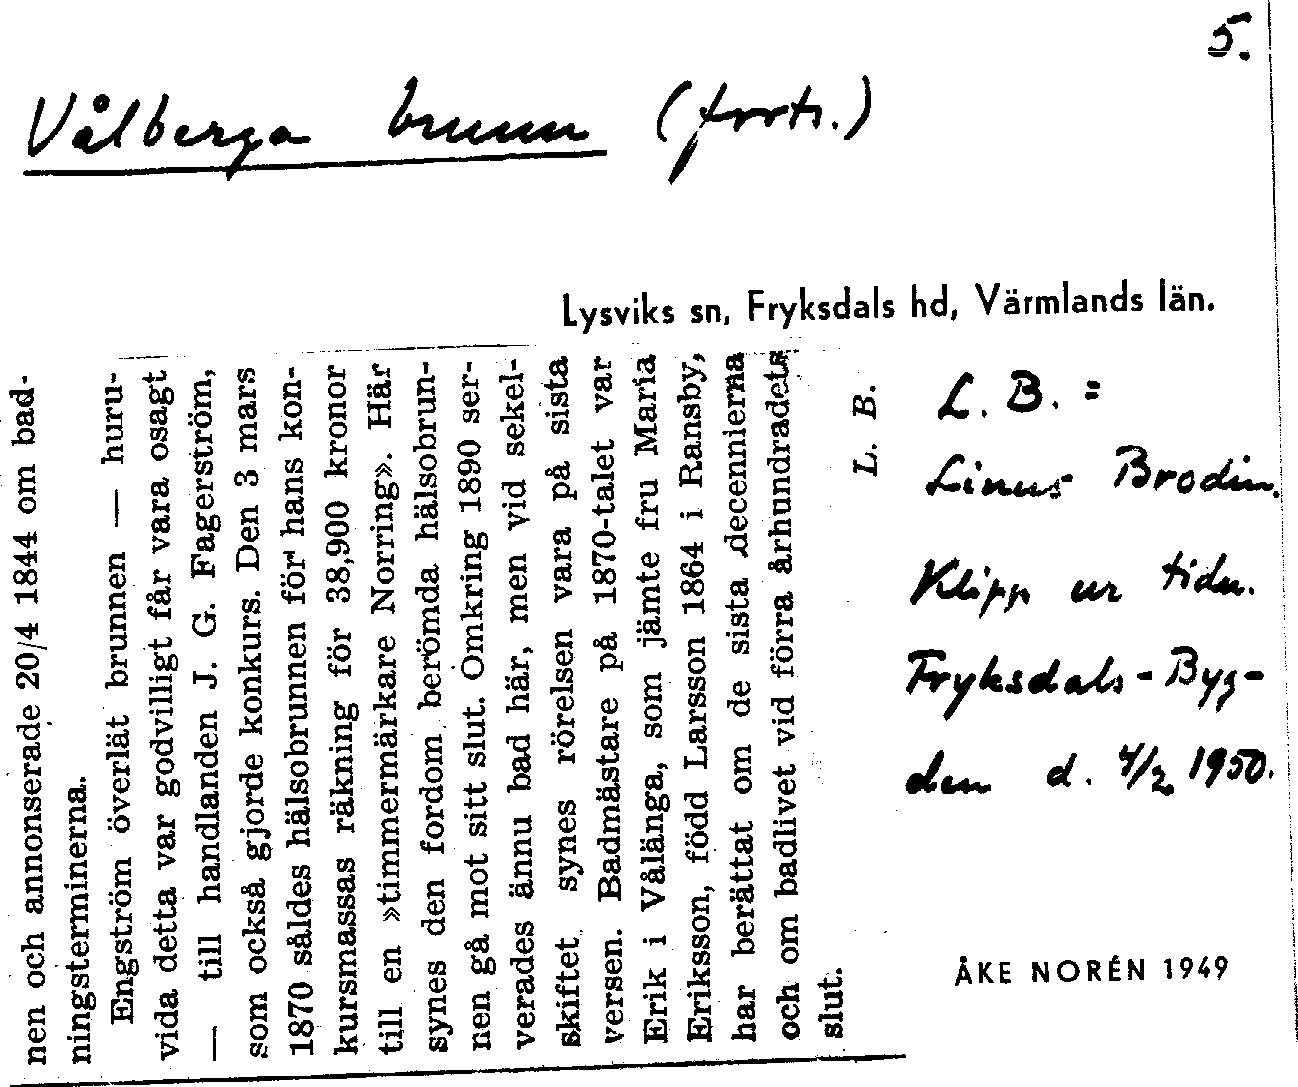 5.
Vålberga brunn (forts.)
Lysviks sn, Fryksdals hd, Värmlands län.
nen och annonserade 20/4 1844 om bad-
ningsterminerna.
Engström överlät brunnen — huru-
vida detta var godvilligt får vara osagt
— till handlanden J. G. Fagerström,
som också gjorde konkurs. Den 3 mars
1870 såldes hälsobrunnen för hans kon-
kursmassas räkning för 38,900 kronor
till en »timmermärkare Norring». Här
synes den fordom berömda hälsobrun-
nen gå mot sitt slut. Omkring 1890 ser-
verades ännu bad här, men vid sekel-
skiftet synes rörelsen vara på sista
versen. Badmästare på 1870-talet var
Erik i Vålänga, som jämte fru Maria
Eriksson, född Larsson 1864 i Ransby,
har berättat om de sista decennierna
och om badlivet vid förra århundradets
slut.
L. B.
L. B. =
Linus Brodin.
Klipp ur tidn.
Fryksdals-Byg-
den d. 4/2 1950.
ÅKE NORÉN 1949